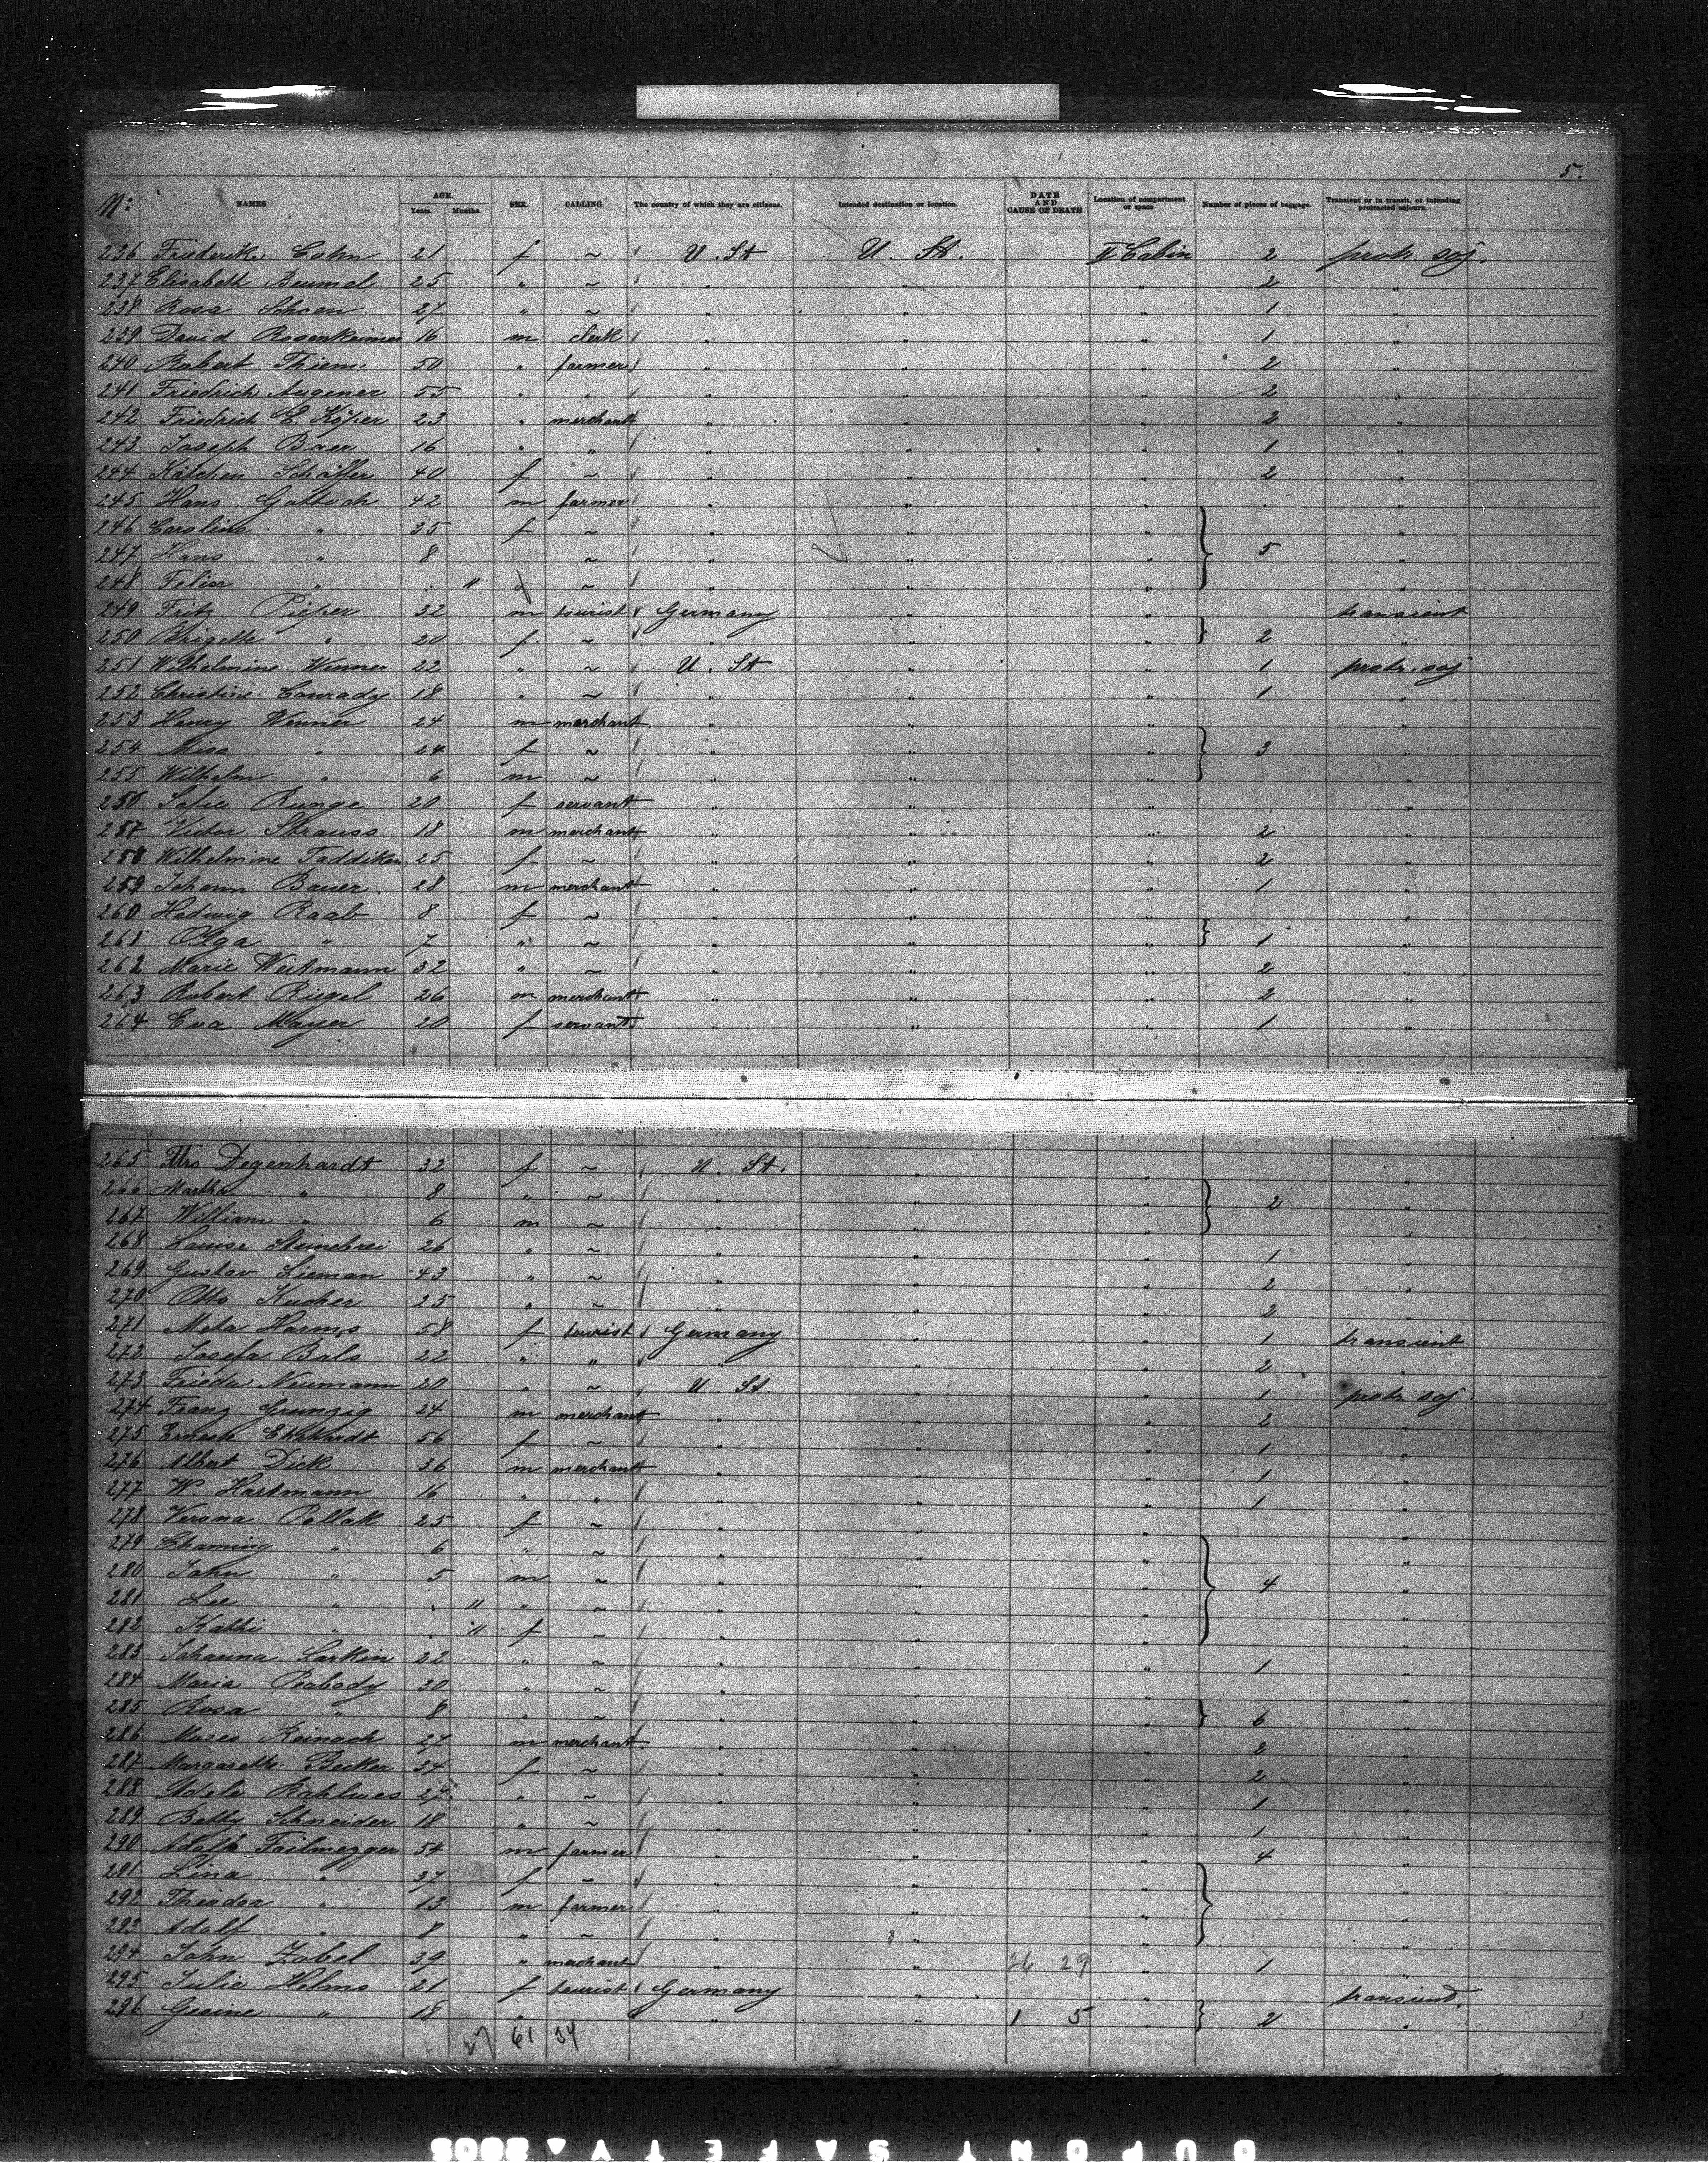 5.
Nº: NAMES AGE. Years. Months. SEX. CALLING The country of which they are citizens. Intended destination or location. DATE AND CAUSE OF DEATH Location of compartment or space Number of pieces of baggage. Transient or in transit, or intending protracted sojourn.
236 Friederike Cohn 21 f ~ U. St U. St. II Cabin 2 protr. soj.
237 Elisabeth Beumel 25 " ~ " " " 2 "
238 Rosa Schoen 27 " ~ " " " 1 "
239 David Rosenheimer 16 m clerk " " " 1 "
240 Robert Thiem 50 " farmer " " " 2 "
241 Friedrich Augener 55 " " " " " 2 "
242 Friedrich E. Köper 23 " merchant " " " 2 "
243 Joseph Baer 16 " " " " " 1 "
244 Kätchen Schäffer 40 f ~ " " " 2 "
245 Hans 42 m farmer " " " "
246 Caroline " 35 f ~ " " " "
247 Hans " 8 ~ " " " 5 "
248 Felix " . 11 ~ " " " "
249 Fritz Pieper 32 m tourist Germany " " transient
250 Brigette " 20 f ~ " " " 2 "
251 Wilhelmine Wenner 22 " ~ U. St " " 1 protr. soj
252 Christine Conrady 18 " ~ " " " 1 "
253 Henry Wenner 24 m merchant " " " "
254 Miss " 24 f ~ " " " 3 "
255 Wilhelm " 6 m ~ " " " "
256 Sofie Runge 20 f servant " " " "
257 Victor Strauss 18 m merchant " " " 2 "
258 Wilhelmine Taddiken 25 f ~ " " " 2 "
259 Johann Bauer 28 m merchant " " " 1 "
260 Hedwig Raab 8 f ~ " " " "
261 Olga " 7 " ~ " " " 1 "
262 Marie Weitmann 32 " ~ " " " 2 "
263 Robert Riegel 26 m merchant " " " 2 "
264 Eva Mayer 20 f servant " " " 1 "
265 Mrs Degenhardt 32 f ~ U. St. " " "
266 Martha " 8 " ~ " " " 2 "
267 William " 6 m ~ " " " "
268 Louise 26 " ~ " " " 1 "
269 Gustav Lieman 43 " ~ " " " 2 "
270 Otto Kucher 25 " ~ " " " 2 "
271 Meta Harms 58 f tourist Germany " " 1 transient
272 Josefa Bals 22 " " " " " 2 "
273 Frieda Neumann 20 " ~ U. St. " " 1 protr. soj
274 Franz Grunzig 24 m merchant " " " 2 "
275 Erneste Ehrhardt 56 f ~ " " " 1 "
276 Albert Dick 36 m merchant " " " 1 "
277 W. Hartmann 16 " " " " " 1 "
278 Verona Pollak 25 f ~ " " " "
279 " 6 " ~ " " " "
280 John " 5 m ~ " " " 4 "
281 Lee " . 11 " ~ " " " "
282 Kathi " . 11 f ~ " " " "
283 Johanna Larkin 22 " ~ " " " 1 "
284 Maria Peabody 30 " ~ " " " "
285 Rosa " 8 " ~ " " " 6 "
286 Reinach 27 m merchant " " " 2 "
287 Margarethe Becker 34 f ~ " " " 2 "
288 Adele Rahlwes 27 " ~ " " " 1 "
289 Betty Schneider 18 " ~ " " " 1 "
290 Adolf Failmezger 54 m farmer " " " 4 "
291 Lina " 37 f ~ " " " "
292 Theodor " 13 m farmer " " " "
293 Adolf " 8 " ~ " " " "
294 John Zobel 39 " merchant " " 26 29 " 1 "
295 Julie Helms 21 f tourist Germany " " transient.
296 Gesine " 18 " " " 1 5 " 2 "
61 34
DUPONT SAFETY